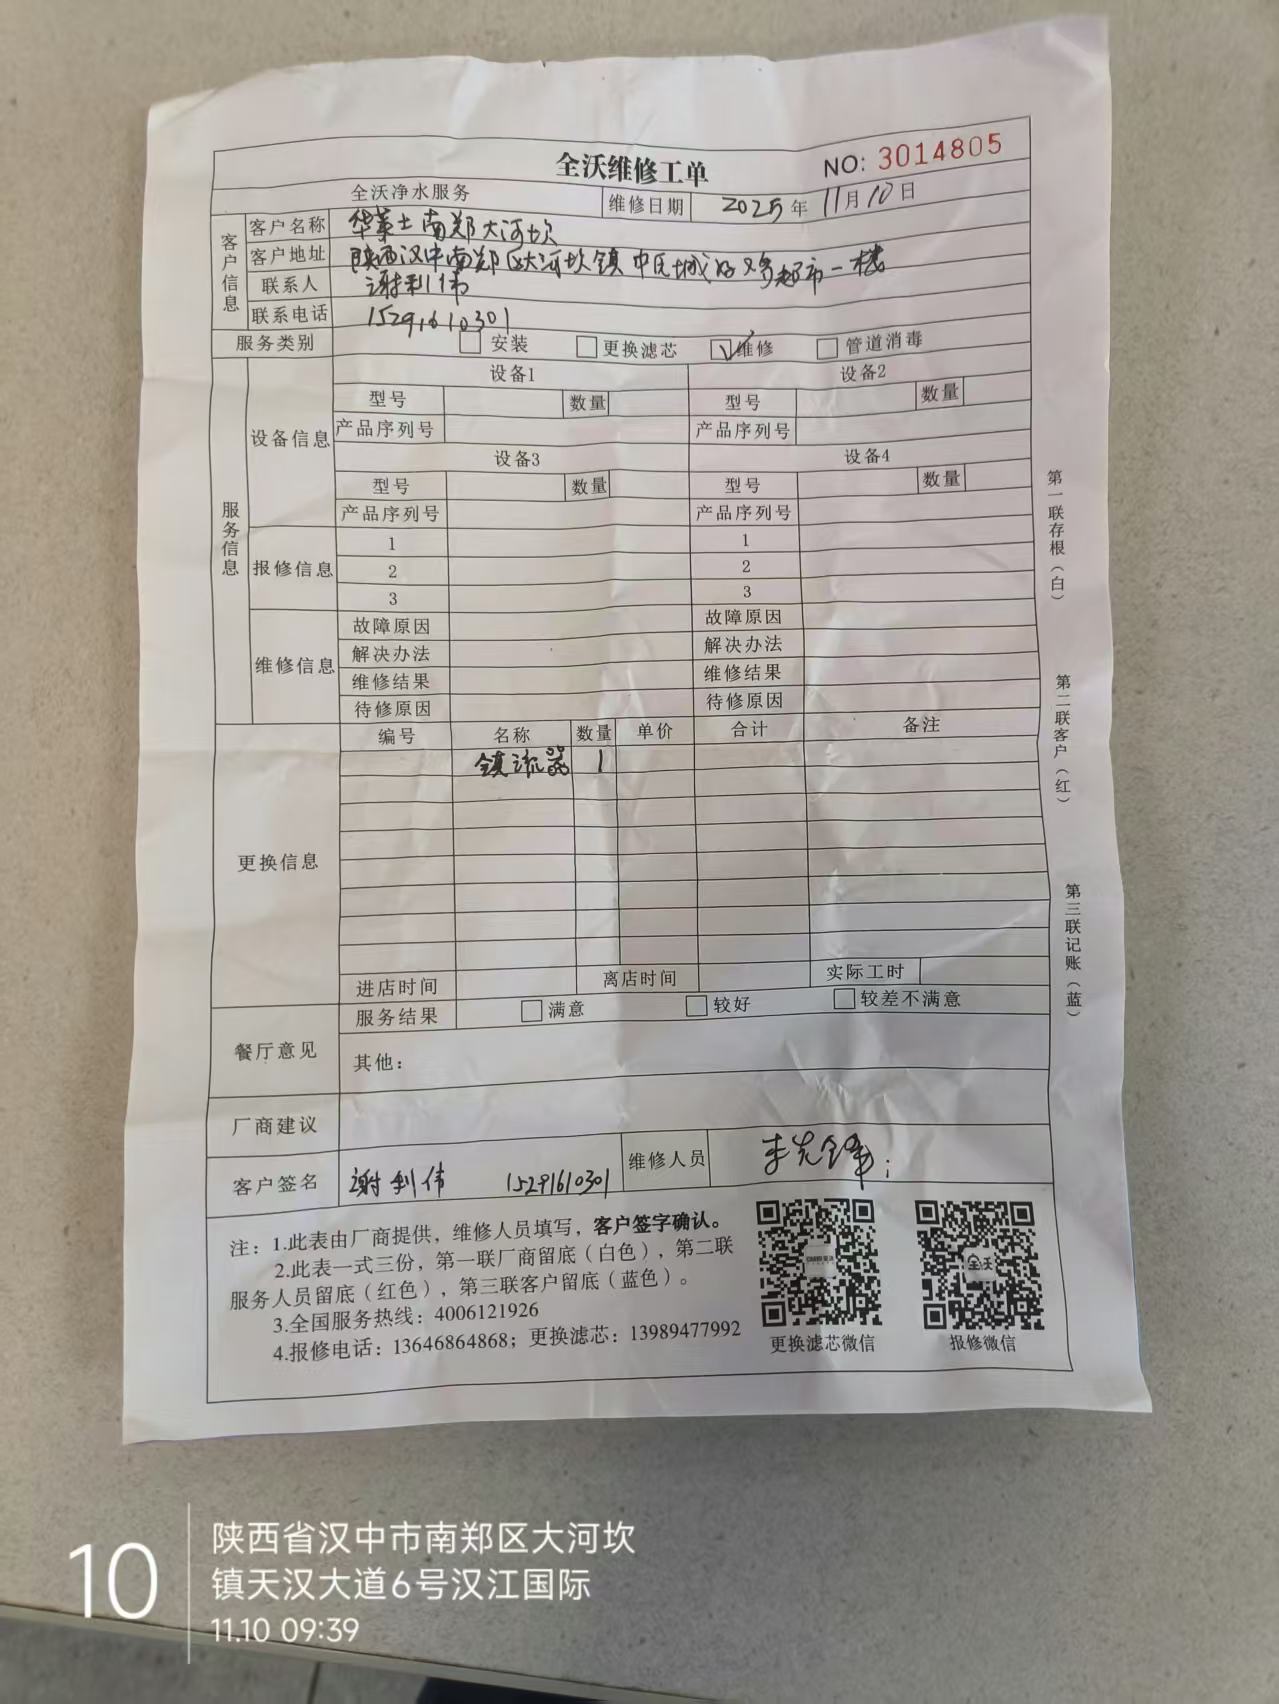 全沃维修工单
NO: 3014805
全沃净水服务 维修日期 2025年11月10日
客户信息
客户名称 华莱士南郑大河坎
客户地址 陕西汉中南郑区大河坎镇中区城好又多超市一楼
联系人 谢利伟
联系电话 15291610301
服务类别 安装 更换滤芯 ✓维修 管道消毒
服务信息
设备信息
设备1 设备2
型号 数量 型号 数量
产品序列号 产品序列号
设备3 设备4
型号 数量 型号 数量
产品序列号 产品序列号
报修信息
1 1
2 2
3 3
维修信息
故障原因 故障原因
解决办法 解决办法
维修结果 维修结果
待修原因 待修原因
更换信息
编号 名称 数量 单价 合计 备注
镇流器 1
进店时间 离店时间 实际工时
餐厅意见
服务结果 满意 较好 较差不满意
其他：
厂商建议
客户签名 谢利伟 15291610301 维修人员 李先锋
注：1.此表由厂商提供，维修人员填写，客户签字确认。
2.此表一式三份，第一联厂商留底（白色），第二联
服务人员留底（红色），第三联客户留底（蓝色）。
3.全国服务热线：4006121926
4.报修电话：13646864868；更换滤芯：13989477992
更换滤芯微信
全沃
报修微信
第一联存根（白）
第二联客户（红）
第三联记账（蓝）
10
陕西省汉中市南郑区大河坎
镇天汉大道6号汉江国际
11.10 09:39